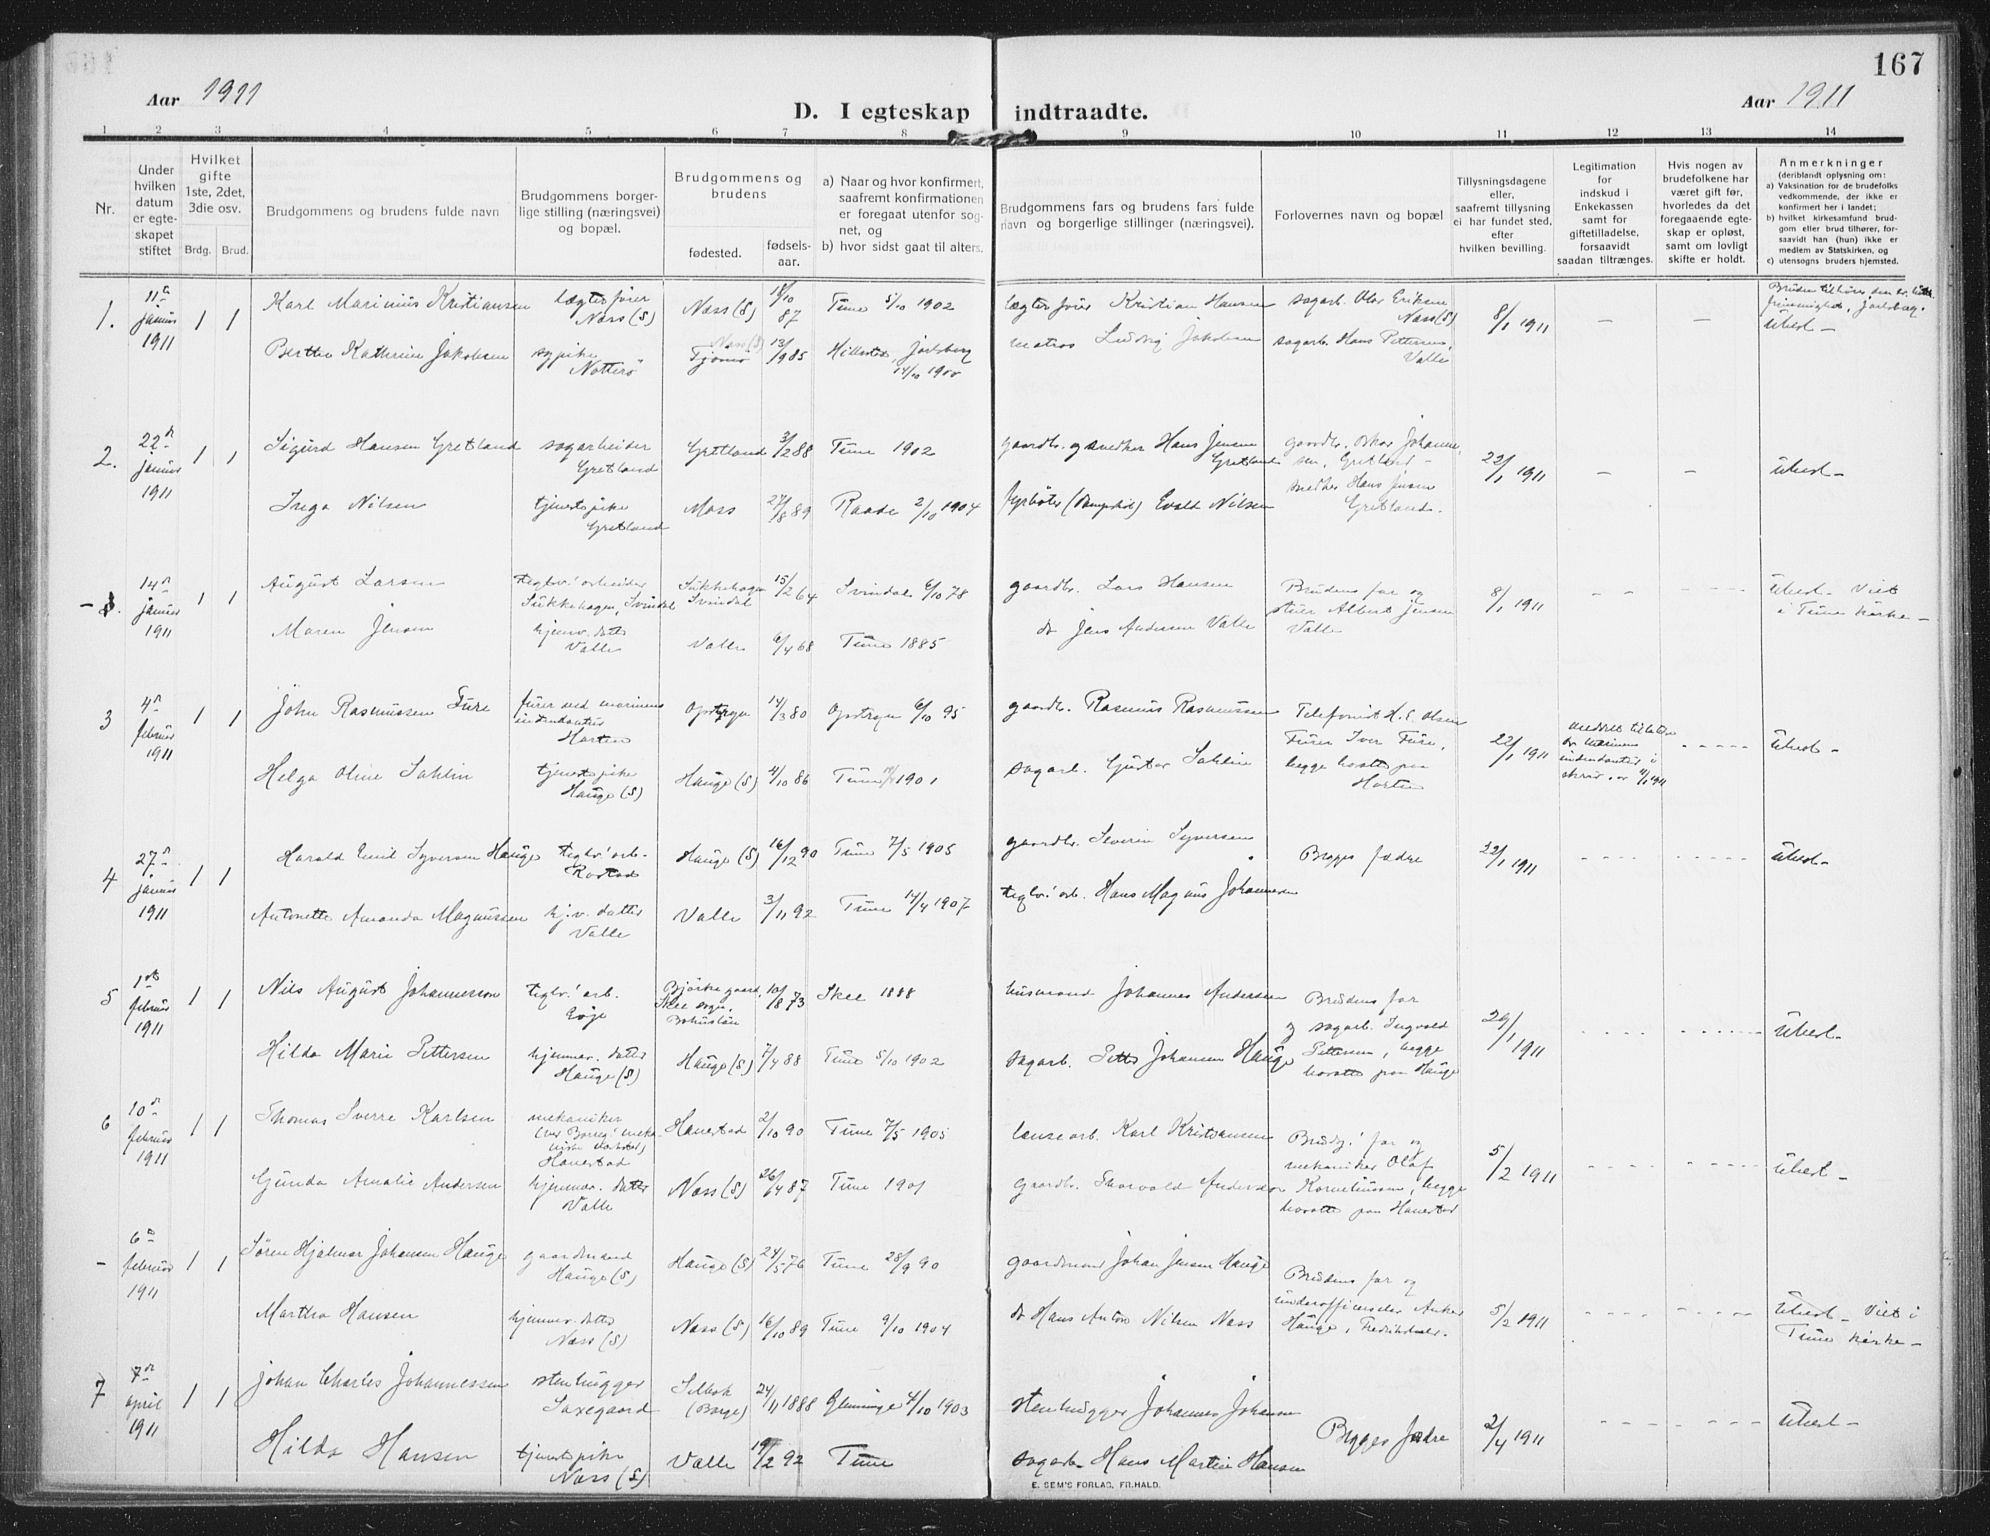 167
Aar 1911
D. I egteskap indtraadte.
Aar 1911
1 2 3 4 5 6 7 8 9 10 11 12 13 14
Nr.
Under hvilken datum er egteskapet stiftet
Hvilket gifte 1ste, 2det, 3die osv.
Brdg. Brud.
Brudgommens og brudens fulde navn
Brudgommens borgerlige stilling (næringsvei) og bopæl.
Brudgommens og brudens
fødested.
fødselsaar.
a) Naar og hvor konfirmert, saafremt konfirmationen er foregaat utenfor sognet, og
b) hvor sidst gaat til alters.
Brudgommens fars og brudens fars fulde navn og borgerlige stillinger (næringsvei).
Forlovernes navn og bopæl
Tillysningsdagene eller, saafremt tillysning ei har fundet sted, efter hvilken bevilling.
Legitimation for indskud i Enkekassen samt for giftetilladelse, forsaavidt saadan tiltrænges.
Hvis nogen av brudefolkene har været gift før, hvorledes da det foregaaende egteskap er opløst, samt om lovligt skifte er holdt.
Anmerkninger
(deriblandt oplysning om:
a) Vaksination for de brudefolks vedkommende, der ikke er konfirmert her i landet;
b) hvilket kirkesamfund brudgom eller brud tilhører, forsaavidt han (hun) ikke er medlem av Statskirken, og
c) utensogns bruders hjemsted.
1. 11te januar 1911 1 1
Karl Marinius Kristiansen
Næss (S)
18/10 87
Tune 5/10 1902
Kristian Hansen
sagarb. Olav Eriksen Næss (S)
8/1 1911
Berthe Kathrine Jakobsen
sypike Nøtterø
Tjømø
13/9 85
14/10 1900
matros Ludvig Jakobsen
sagarb. Hans Pettersen, Valle
2. 22de januar 1911 1 1
Sigurd Hansen Gretland
sagarbeider Gretland
Gretland
3/2 88
Tune 1902
gaardbr. og snedker Hans Jensen Gretland
gaardbr. Oskar Johannesen, Gretland
22/1 1911
Inga Nilsen
tjenestepike Gretland
Moss
27/8 89
Raade 2/10 1904
Evald Nilsen
snedker Hans Jensen Gretland.
14de januar 1911 1 1
August Larsen
teglv. arbeider
Svindal
15/2 64
Svindal 6/10 78
gaardbr. Lars Hansen
Brudens far og
Albert Jensen Valle
8/1 1911
Viet i Tune kirke
Maren Jensen
hjemv. datter Valle
Valle
6/4 68
Tune 1885
do Jens Andersen Valle
3 4de februar 1911 1 1
John Rasmussen Fure
furer ved marinens intendantur Horten
Opstryn
14/3 80
Opstryn 6/10 95
gaardbr. Rasmus Rasmussen
Telefonist H. E. Olsen
Furer Iver Fure, begge bosatte paa Horten
22/1 1911
Helga Oline Sahlin
tjenestepike Hauge (S)
Hauge (S)
4/10 86
Tune 1901
sagarb. Gustav Sahlin
4 27de januar 1911 1 1
Harald Emil Syversen Hauge
teglv. arb. Rostad
Hauge (S)
16/12 90
Tune 7/5 1905
gaardbr. Severin Syversen
Begges fædre
22/1 1911
Antonette Amanda Magnussen
hj.v. datter Valle
Valle
3/11 92
Tune 14/4 1907
teglv. arb. Hans Magnus Johannesen
5 1ste februar 1911 1 1
Nils August Johannesson
teglv. arb.
Bjørke gaard, Skee sogn, Bohuslän
10/8 73
Skee 1888
husmand Johannes Andersen
Brudens far og sagarb. Ingvald Pettersen, begge bosatte paa Hauge
29/1 1911
Hilda Marie Pettersen
hjemmev. datter Hauge (S)
Hauge (S)
7/4 88
Tune 5/10 1902
sagarb. Petter Johansen Hauge
6 10de februar 1911 1 1
Thomas Sverre Karlsen
mekaniker
Hanestad
Hanestad
2/10 90
Tune 7/5 1905
lænsearb. Karl Kristiansen
Brudg. far og mekaniker Olaf Korneliussen, begge bosatte paa Hanestad
5/2 1911
Gunda Amalie Andersen
hjemmev. datter Valle
Næss (S)
26/4 87
Tune 1901
gaardbr. Thorvald Andersen
6te februar 1911 1 1
Søren Hjalmar Johansen Hauge
gaardmand Hauge (S)
Hauge (S)
24/5 76
Tune 28/9 90
gaardmand Johan Jensen Hauge
Brudens far og underofficerselev Anker Hauge, Fredrikshald.
5/2 1911
Viet i Tune kirke
Martha Hansen
hjemmev. datter Næss (S)
Næss (S)
16/10 89
Tune 9/10 1904
do Hans Anton Nilsen Næss
7 7de april 1911 1 1
Johan Charles Johannessen
stenhugger Saxegaard
Selbak (Borge)
24/11 1888
Glemminge 4/10 1903
stenhugger Johannes Johansen
Begges fædre
2/4 1911
Hilda Hansen
tjenestepike Næss (S)
Valle
19/2 92
Tune
sagarb. Hans Martin Hansen
E. SEM'S FORLAG, FR.HALD.